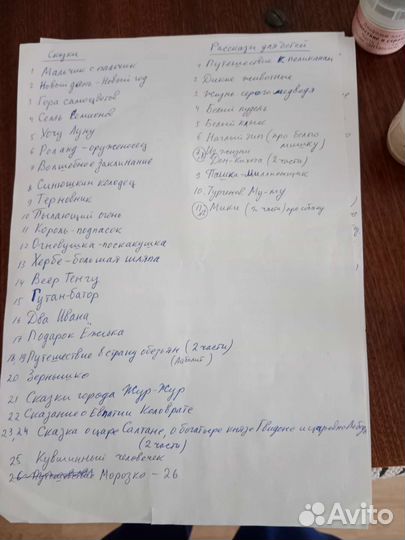 Сказки
1 Мальчик с пальчик
2 Новый день - Новый год
3 Гора самоцветов
4 Семь Симионов
5 Хочу Луну
6 Роланд - оруженосец
7 Волшебное заклинание
8 Синюшкин колодец
9 Терновник
10 Пылающий огонь
11 Король-подпасок
12 Огневушка-поскакушка
13 Хербе-большая шляпа
14 Веер Тенгу
15 Гутан-батор
16 Два Ивана
17 Подарок Ёжика
18 19 Путешествие в страну обезьян (2 части)
20 Зернышко
21 Сказки города Жур-Жур
22 Сказание о Евпатии Коловрате
23,24 Сказка о царе Салтане, о богатыре князе Гвидоне и царевне Лебедь
(2 части)
25 Кувшинный человечек
26 Морозко - 26
Рассказы для детей
1 Путешествие к пеликанам
2 Дикие животные
3 Жизнь серого медведя
4 Белый пудель
5 Белый клык
6 (про белого
мишку)
7,8 Из жизни
Дон-Кихота (2 части)
9 Пашка-миллионщик
10. Тургенев Му-му
11,12 Мики (2 части)
Avito